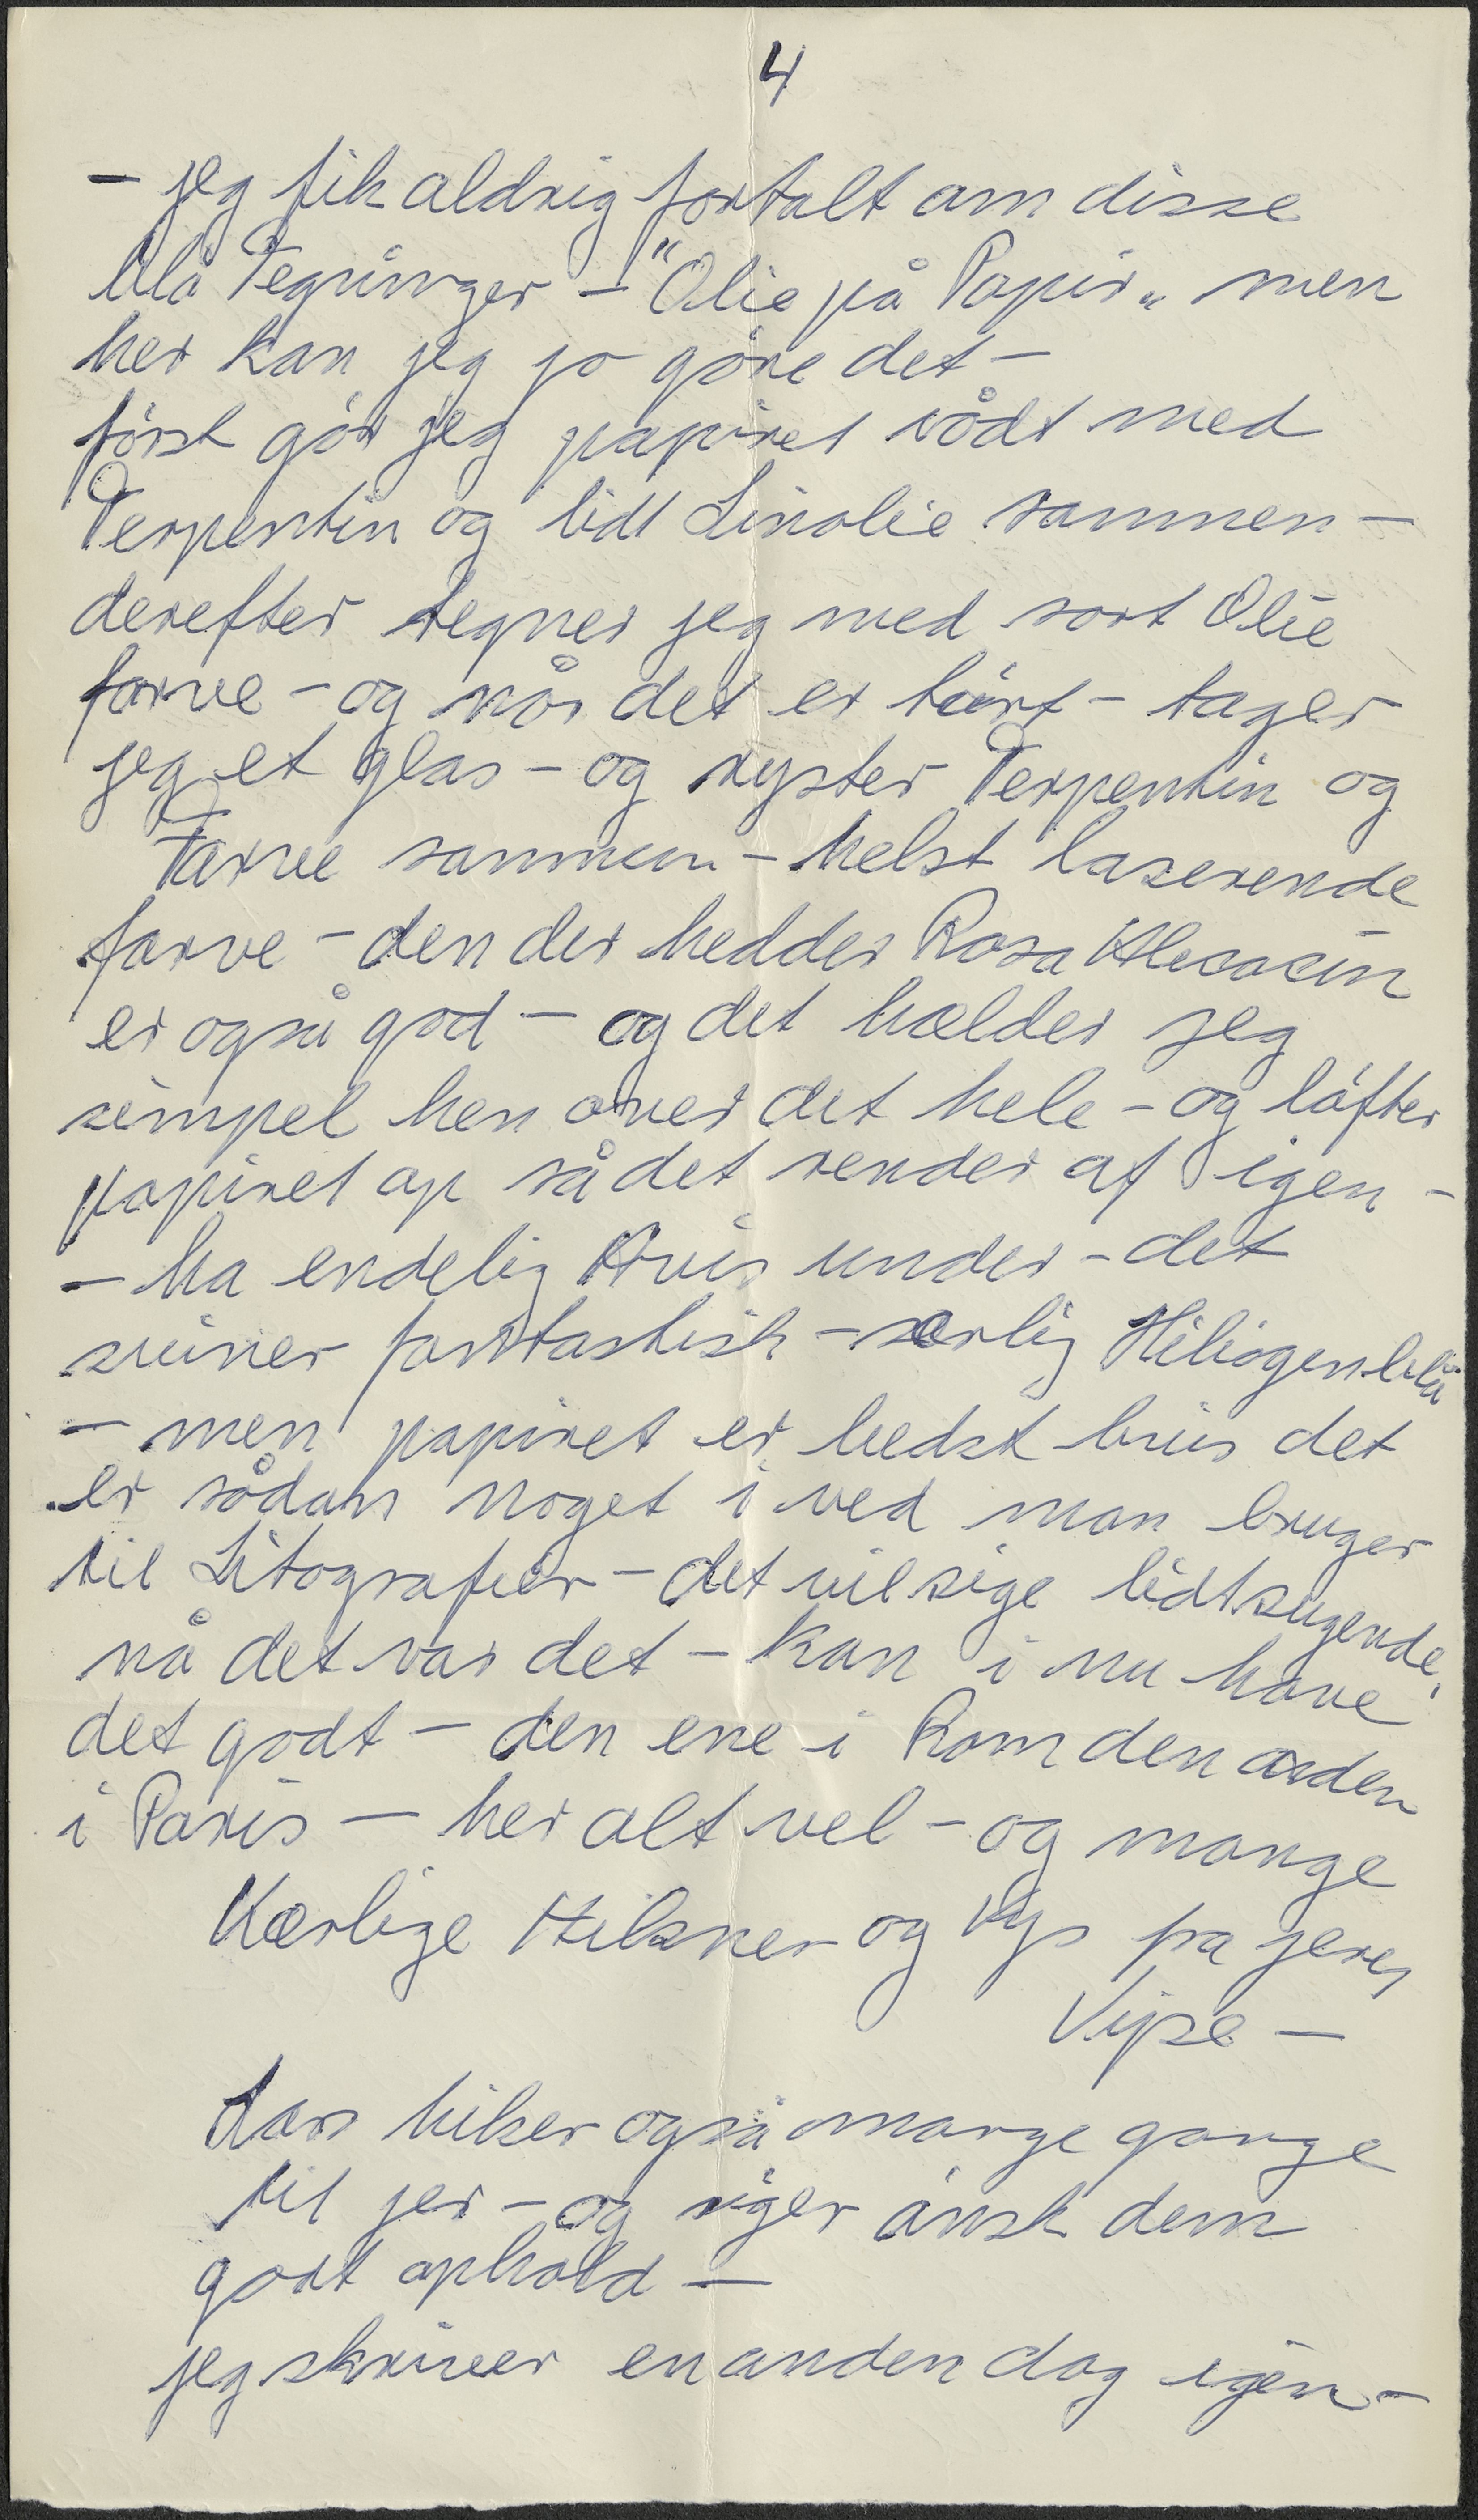 4
- jeg fik aldrig fortalt om disse
blå Tegninger - "Olie på Papir" men
her kan jeg jo göre det -
först gör jeg papiret vådt med
Terpentin og lidt Linolie sammen -
derefter tegner jeg med sort Olie
farve - og når det er tört - tager
jeg et glas - og ryster Terpentin og
Farve sammen - helst laserende
farve - den der hedder Rosa
er også god - og det hælder jeg
simpel hen over det hele - og löfter
papiret op så det render af igen -
- ha endelig Avis under - det
sviner fantastisk - særlig Heliogenblå
- men papiret er bedst hvis det
er sådan noget i ved man bruger
til Litografier - det vil sige lidt sugende.
nå det var det - kan i nu have
det godt - den ene i Rom den anden
i Paris - her alt vel - og mange
Kærlige Hilsner og Kys fra jeres
Vipse -
Lars hilser også mange gange
til jer - og siger önsk dem
godt ophold -
jeg skriver en anden dag igen -